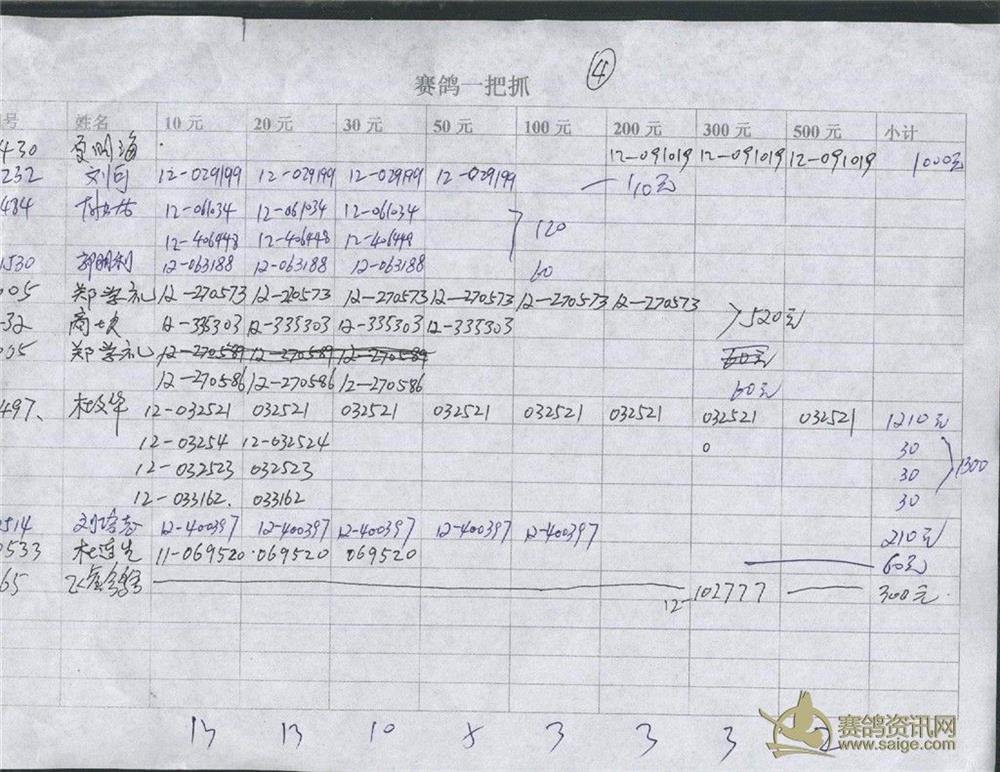 ④
赛鸽一把抓
号 姓名 10元 20元 30元 50元 100元 200元 300元 500元 小计
430 夏明海 12-091019 12-091019 12-091019 1000元
232 刘 12-029199 12-029199 12-029199 12-029199 — 110元
484 12-061034 12-061034 12-061034
12-406448 12-406448 12-406448 120
1530 郭明利 12-063188 12-063188 12-063188 60
005 郑学礼 12-270573 12-270573 12-270573 12-270573 12-270573 12-270573
-32 商 12-335303 12-335303 12-335303 12-335303 520元
005 郑学礼 12-270589 12-270589 12-270589 60元
12-270586 12-270586 12-270586 60元
497、 杜文华 12-032521 032521 032521 032521 032521 032521 032521 032521 1210元
12-03254 12-032524 0 30
12-032523 032523 30 1300
12-033162. 033162 30
0514 刘 12-400397 12-400397 12-400397 12-400397 12-400397 210元
0533 杜连生 11-069520 069520 069520 — 60元
65 12-102777 — 300元
13 13 10 5 3 3 3 2
赛鸽资讯网
www.saige.com